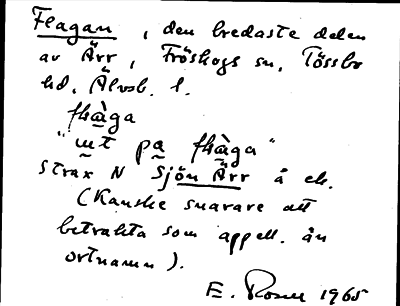 Flagan, den bredaste delen
av Ärr, Fröskogs sn, Tössbo
hd, Älvsb. l.
flàga
"ut pa flàga"
strax N Sjön Ärr å ek.
(Kanske snarare att
betrakta som appell. än
ortnamn).
E. Rosell 1965